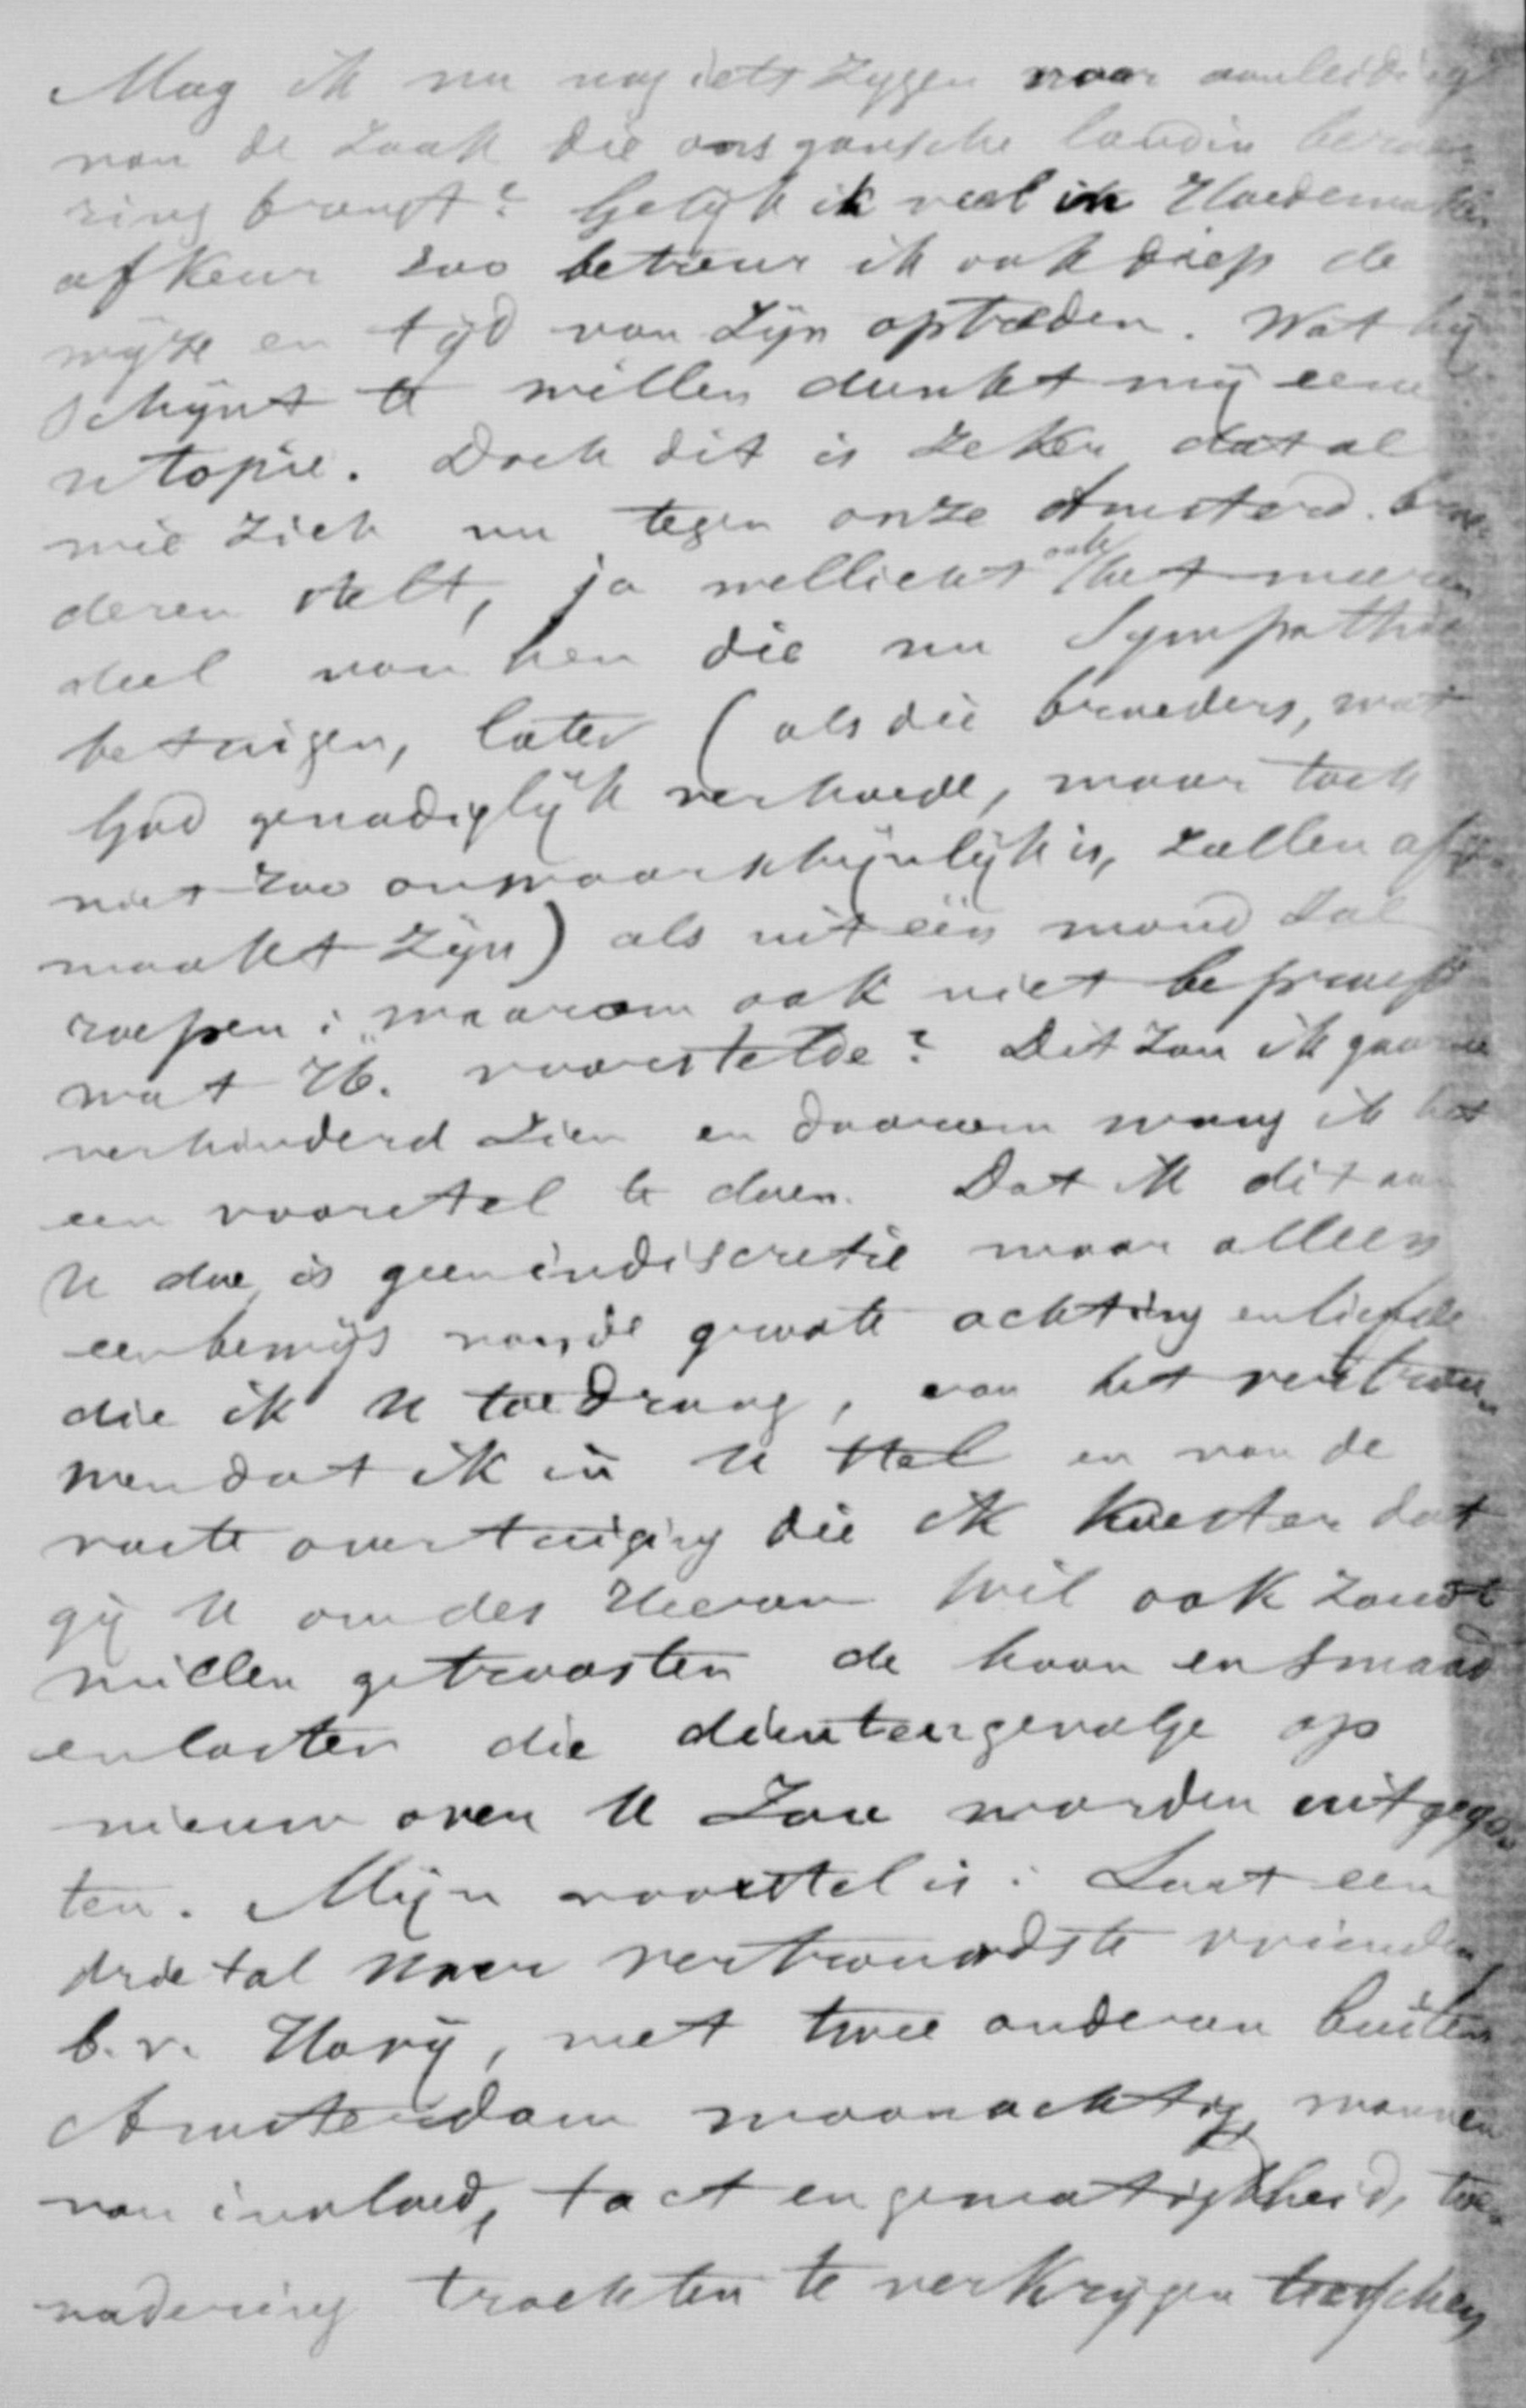 Mag ik nu nog iets zeggen naar aanleiding
van de zaak die ons gansche land in beroe-
ring brengt? Gelijk ik veel in Hoedemaker
afkeur zoo betreur ik ook diep de
wijze en tijd van zijn optreden. Wat hij
schijnt te willen dunkt mij eene
utopie. Doch dit is zeker dat al
wie zich nu tegen onze Amsterd. broe-
deren stelt, ja wellicht ook het meeren-
deel van hen die nu Sympathie
betuigen, later (als die broeders, wat
God genadiglijk verhoede, maar toch
niet zoo onwaarschijnlijk is, zullen afge-
maakt zijn) als uit één mond zal
roepen: "waarom ook niet beproefd
wat H. voorstelde? Dit zou ik gaarne
verhinderd zien en daarom waag ik het
een voorstel te doen. Dat ik dit aan
U doe, is geen indiscretie maar alleen
een bewijs van de groote achting en liefde
die ik U toedraag, van het vertrou-
wen dat ik in U stel en van de
vaste overtuiging die ik koester dat
gij U om des Heeren wil ook zoudt
willen getroosten de hoon en smaad
en laster die dientengevolge op
nieuw over U zou worden uitgego-
ten. Mijn voorstel is: Laat een
drietal Uwer vertrouwdste vrienden,
b.v. Hovij, met twee anderen buiten
Amsterdam woonachtig, mannen
van invloed, tact en gematigdheid, toe-
nadering trachten te verkrijgen tusschen